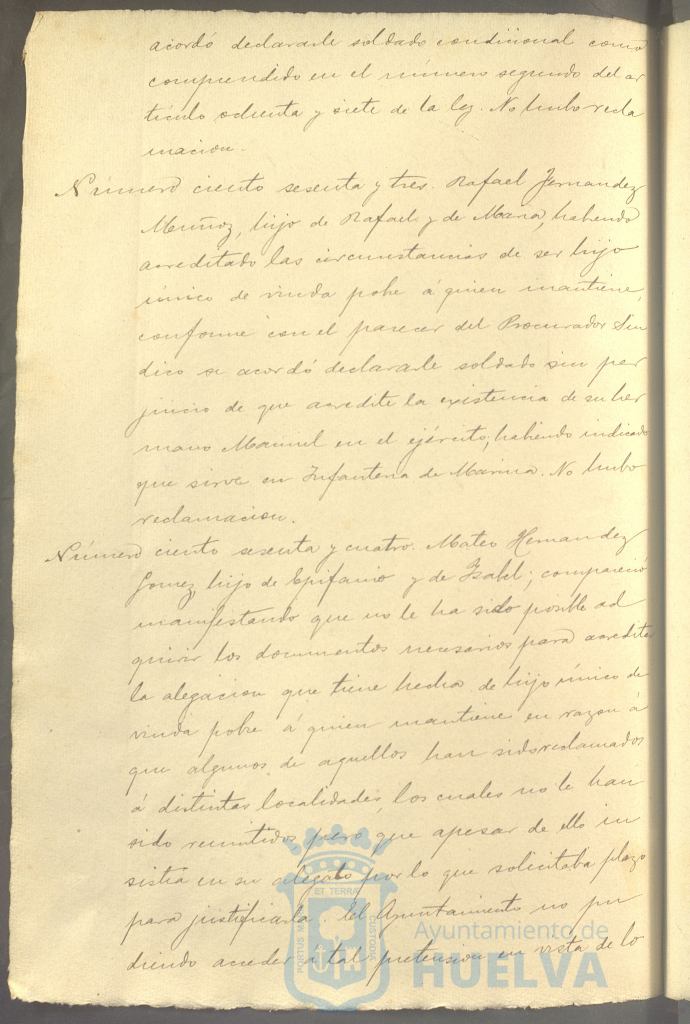 acordó declararle soldado condicional como
comprendido en el número segundo del ar
tículo ochenta y siete de la ley. No hubo recla
macion.
Número ciento sesenta y tres. Rafael Fernandez
Muñoz, hijo de Rafael y de Maria, habiendo
acreditado las circunstancias de ser hijo
único de viuda pobre á quien mantiene,
conforme con el parecer del Procurador Sín
dico se acordó declararle soldado sin per
juicio de que acredite la existencia de su her
mano Manuel en el ejército, habiendo indicado
que sirve en Infanteria de Marina. No hubo
reclamacion.
Número ciento sesenta y cuatro. Mateo Hernandez
Gomez, hijo de Epifanio y de Isabel; compareció
manifestando que no le ha sido posible ad
quirir los documentos necesarios para acreditar
la alegacion que tiene hecha de hijo único de
viuda pobre á quien mantiene en razon á
que algunos de aquellos han sido reclamados
á distintas localidades, los cuales no le han
sido remitidos pero que apesar de ello in
sistia en su alegato por lo que solicitaba plazo
para justificarla. El Ayuntamiento no pu
diendo acceder á tal pretension en vista de lo
PORTUS MARIS ET TERRÆ CUSTODIA
Ayuntamiento de
HUELVA